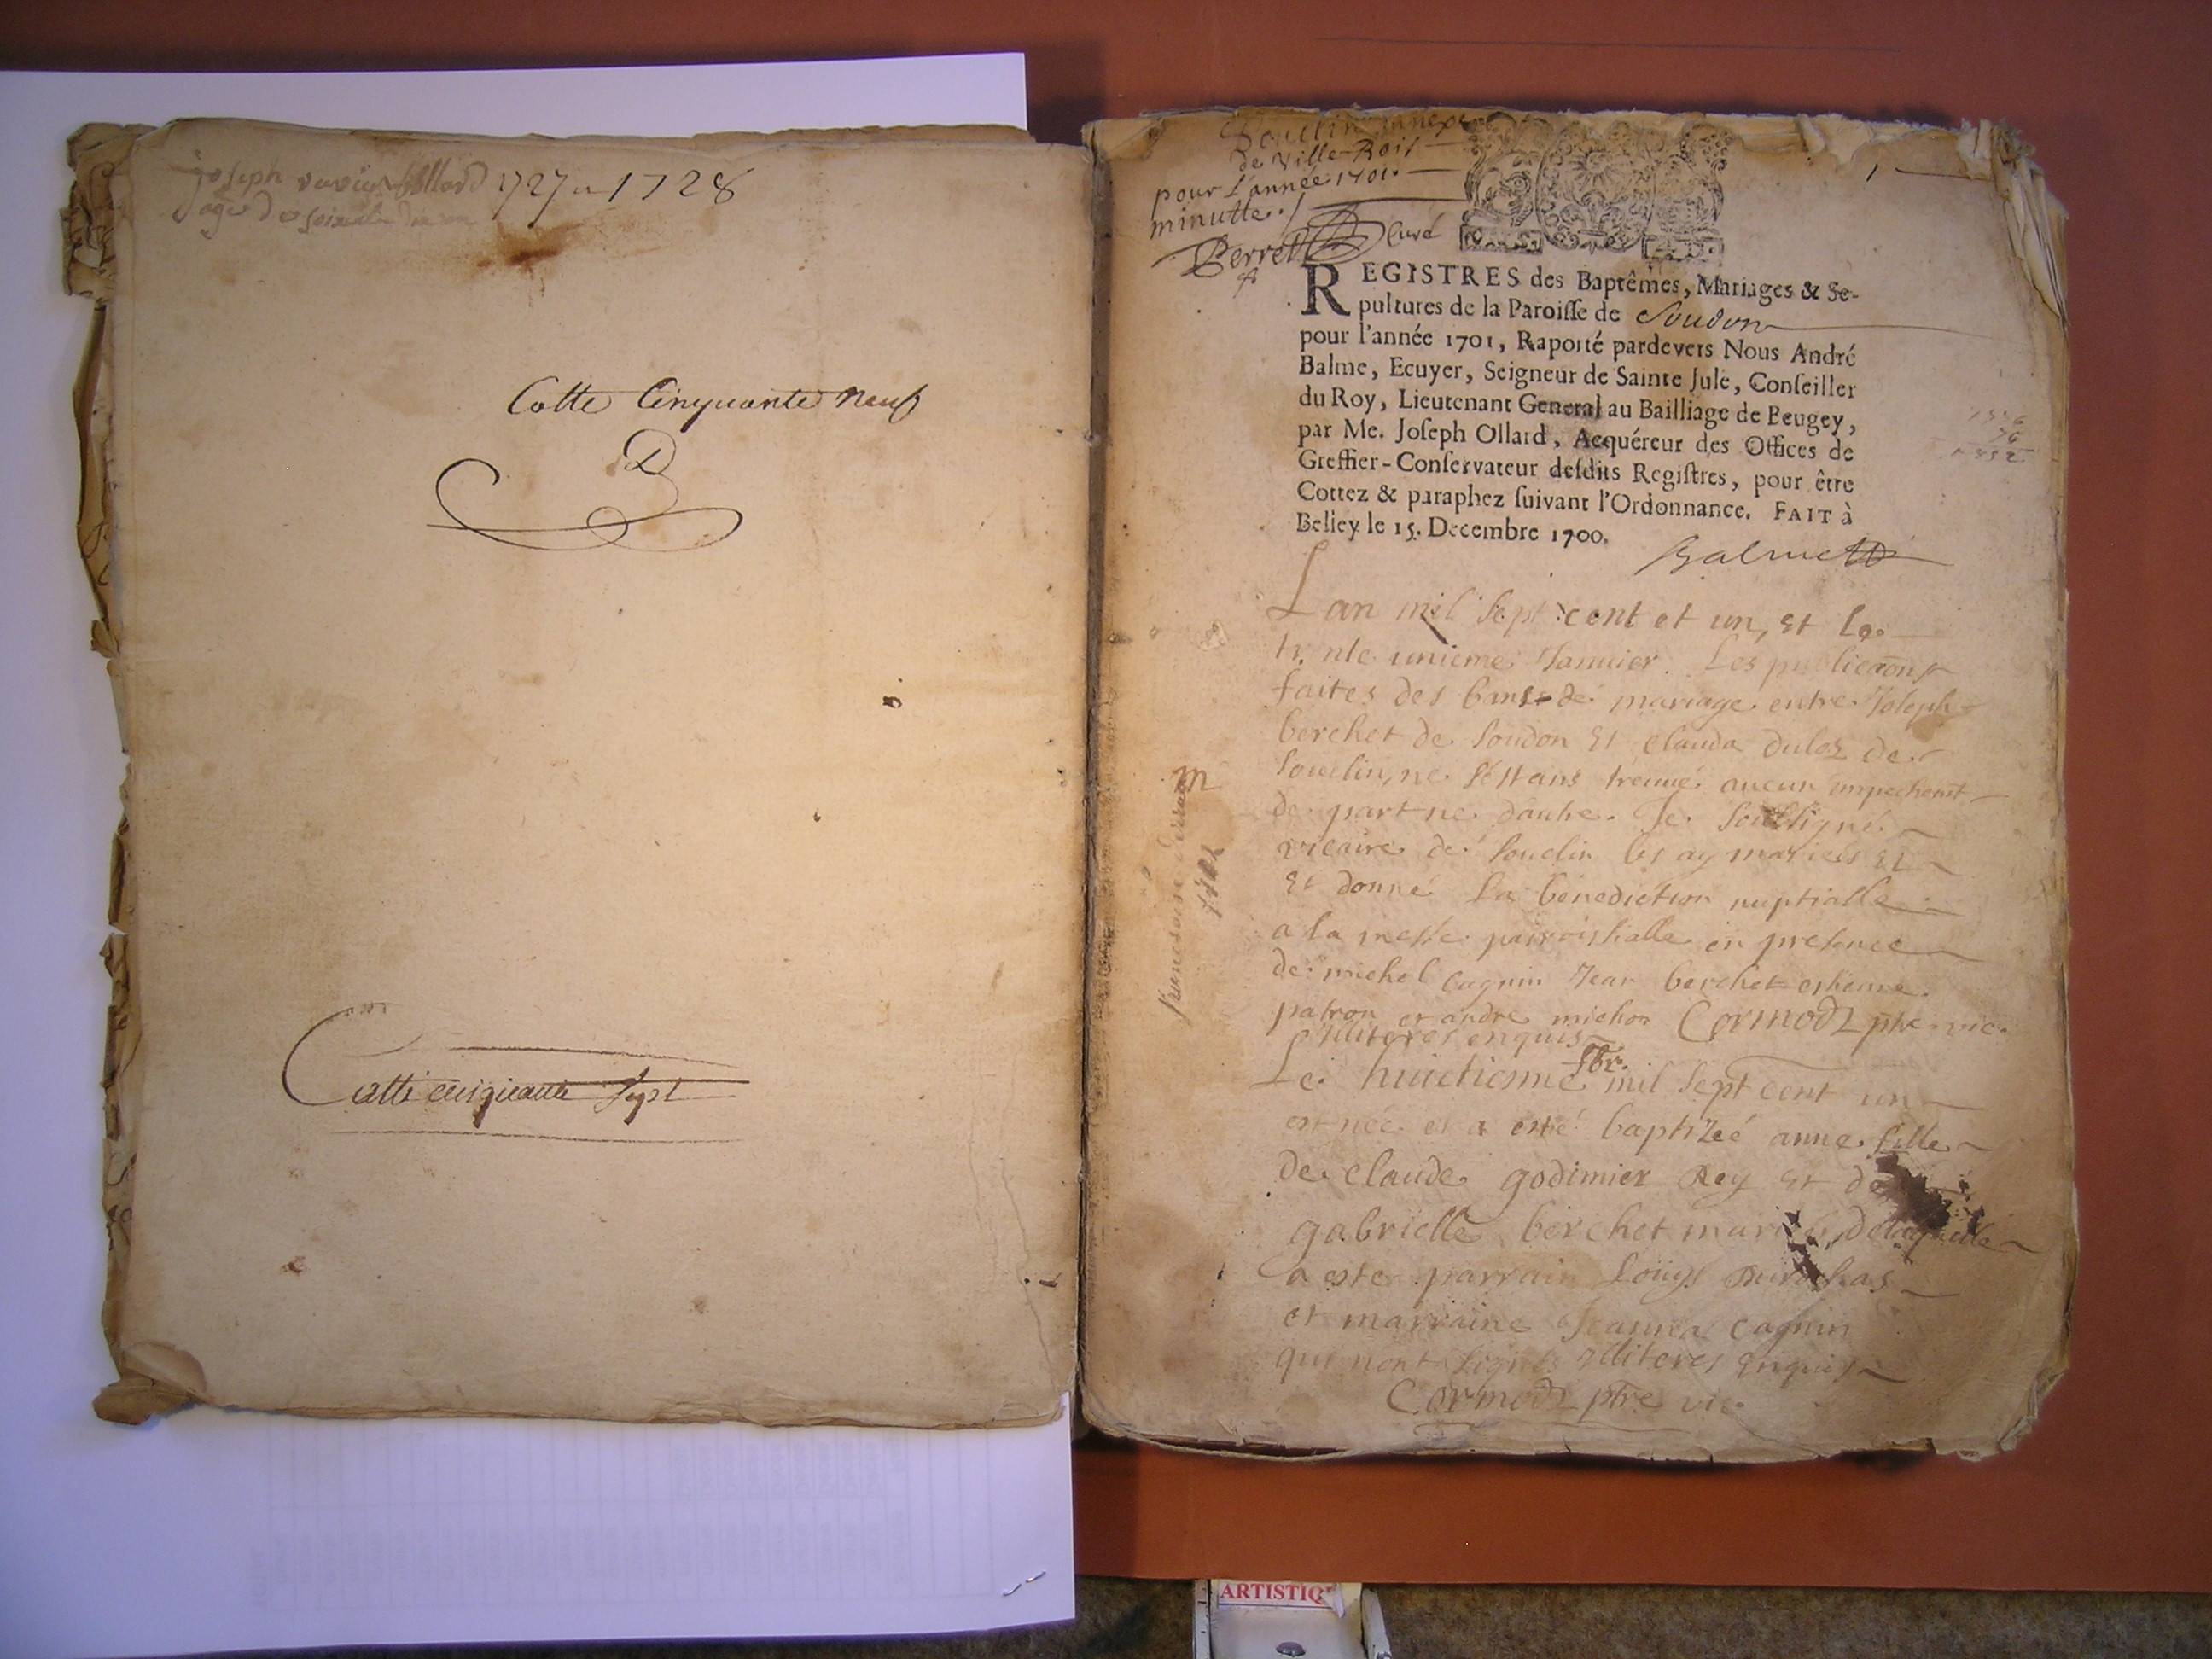 joseph ollard 1727 1728
Cotte Cinquante neuf
Cotte cinquante Sept
Souclin annexe
de Ville-Bois
pour l'année 1701.
minutte./
Perret Curé
1
REGISTRES des Baptêmes, Mariages & Se-
pultures de la Paroisse de Soudon
pour l'année 1701, Raporté pardevers Nous André
Balme, Ecuyer, Seigneur de Sainte Jule, Conseiller
du Roy, Lieutenant General au Bailliage de Beugey,
par Me. Joseph Ollard, Acquéreur des Offices de
Greffier-Conservateur desdits Registres, pour être
Cottez & paraphez suivant l'Ordonnance. FAIT à
Belley le 15. Decembre 1700.
Balme
Lan mil sept cent et un, et le
trente unieme Januier. Les publicaons
faites des bans de mariage entre Joseph
berchet de soudon et clauda duloz de
souclin, ne sestans treuué aucun impechemt
de part ne dautre. Je soussigné
vicaire de souclin les ay mariés et
et donné la benediction nuptialle
a la messe parroissialle en presence
de michel cagnin Jean berchet estienne
patron et andre michon Cormodz ptre vic.
illiteres enquis
Le huictieme 7br. mil sept cent un
est née et a esté baptizeé anne fille
de claude godimier Rey et de
gabrielle berchet mariés, de laquelle
a este parrain Louys
et marraine Jeanne cagnin
qui nont signé illiteres enquis
Cormodz ptre vic.
m
ARTISTIQ